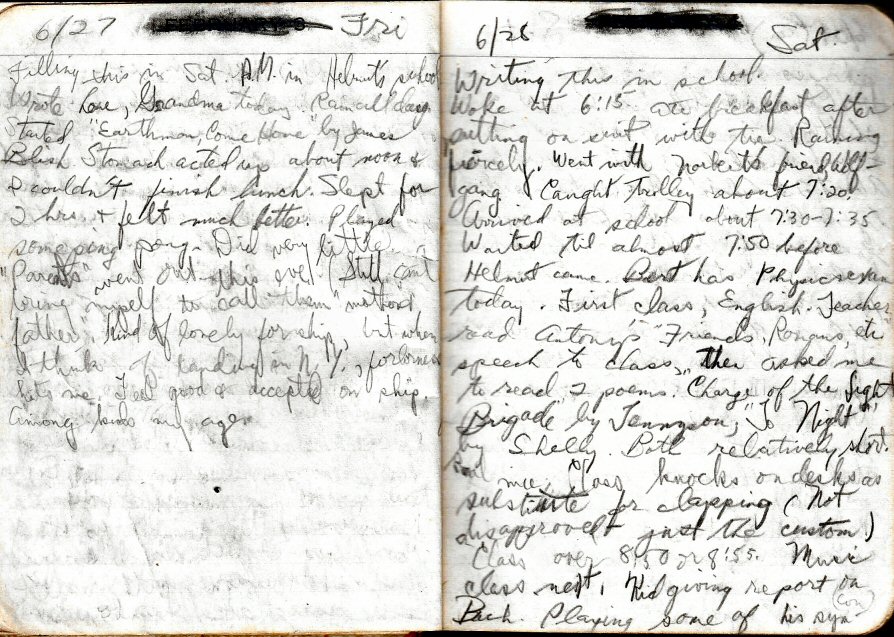 6/27 Fri
Filling this in Sat. A.M. in Helmut's school
Wrote Love, Grandma today. Rain all day.
Started "Earthman, Come Home" by James
Blish Stomach acted up about noon &
I couldn't finish lunch. Slept for
2 hrs. & felt much better. Played
some ping pong. Did very little.
"Parents" went out this eve. (Still can't
bring myself to call them "mother
father". Kind of lonely for ship, but when
I think of landing in N.Y., forlornness
hits me. Feel good & accepted on ship.
Among kids my age.
6/28 Sat.
Writing this in school.
Woke at 6:15 ate breakfast after
putting on suit with tie. Raining
fiercely. Went with Norbert's friend, Wolf-
gang. Caught trolley about 7:20.
Arrived at school about 7:30-7:35
Waited til almost 7:50 before
Helmut came. Bert has Physics exam
today. First class, English. Teacher
read Antony's "Friends, Romans, etc
speech to class, then asked me
to read 2 poems. Charge of the Light
Brigade" by Tennyson, "To Night"
by Shelly. Both relatively short.
and nice. Class knocks on desks as
substitute for clapping (Not
disapproval - just the custom.)
Class over 8:50 or 8:55. Music
class next. Kid giving report on
Bach. Playing some of his sym-
(con)